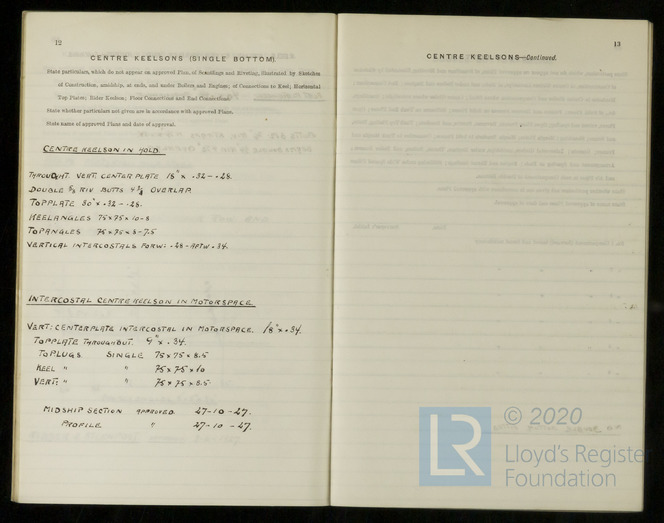 12
CENTRE KEELSONS (SINGLE BOTTOM).
State particulars, which do not appear on approved Plan, of Scantlings and Riveting, illustrated by Sketches
of Construction, amidship, at ends, and under Boilers and Engines; of Connections to Keel; Horizontal
Top Plates; Rider Keelson; Floor Connections and End Connections.
State whether particulars not given are in accordance with approved Plans.
State name of approved Plans and date of approval.
CENTRE KEELSON IN HOLD.
THROUGHT. VERT. CENTER PLATE 18" x .32 - .28.
DOUBLE RIV BUTTS OVERLAP.
TOPPLATE 30" x .32 - .28.
KEELANGLES 75 x 75 x 10-8
TOPANGLES 75 x 75 x 8-7,5
VERTICAL INTERCOSTALS FORW: .28 - AFTW .34.
INTERCOSTAL CENTRE KEELSON IN MOTORSPACE.
VERT: CENTERPLATE INTERCOSTAL IN MOTORSPACE. 18" x .34.
TOPPLATE THROUGHOUT. 9" x .34.
TOPLUGS SINGLE 75 x 75 x 8.5
KEEL " " 75 x 75 x 10
VERT: " " 75 x 75 x 8.5
MIDSHIP SECTION APPROVED 27-10-27.
PROFILE " 27-10-27.
13
CENTRE KEELSONS—Continued.
© 2020
LR
Lloyd's Register
Foundation